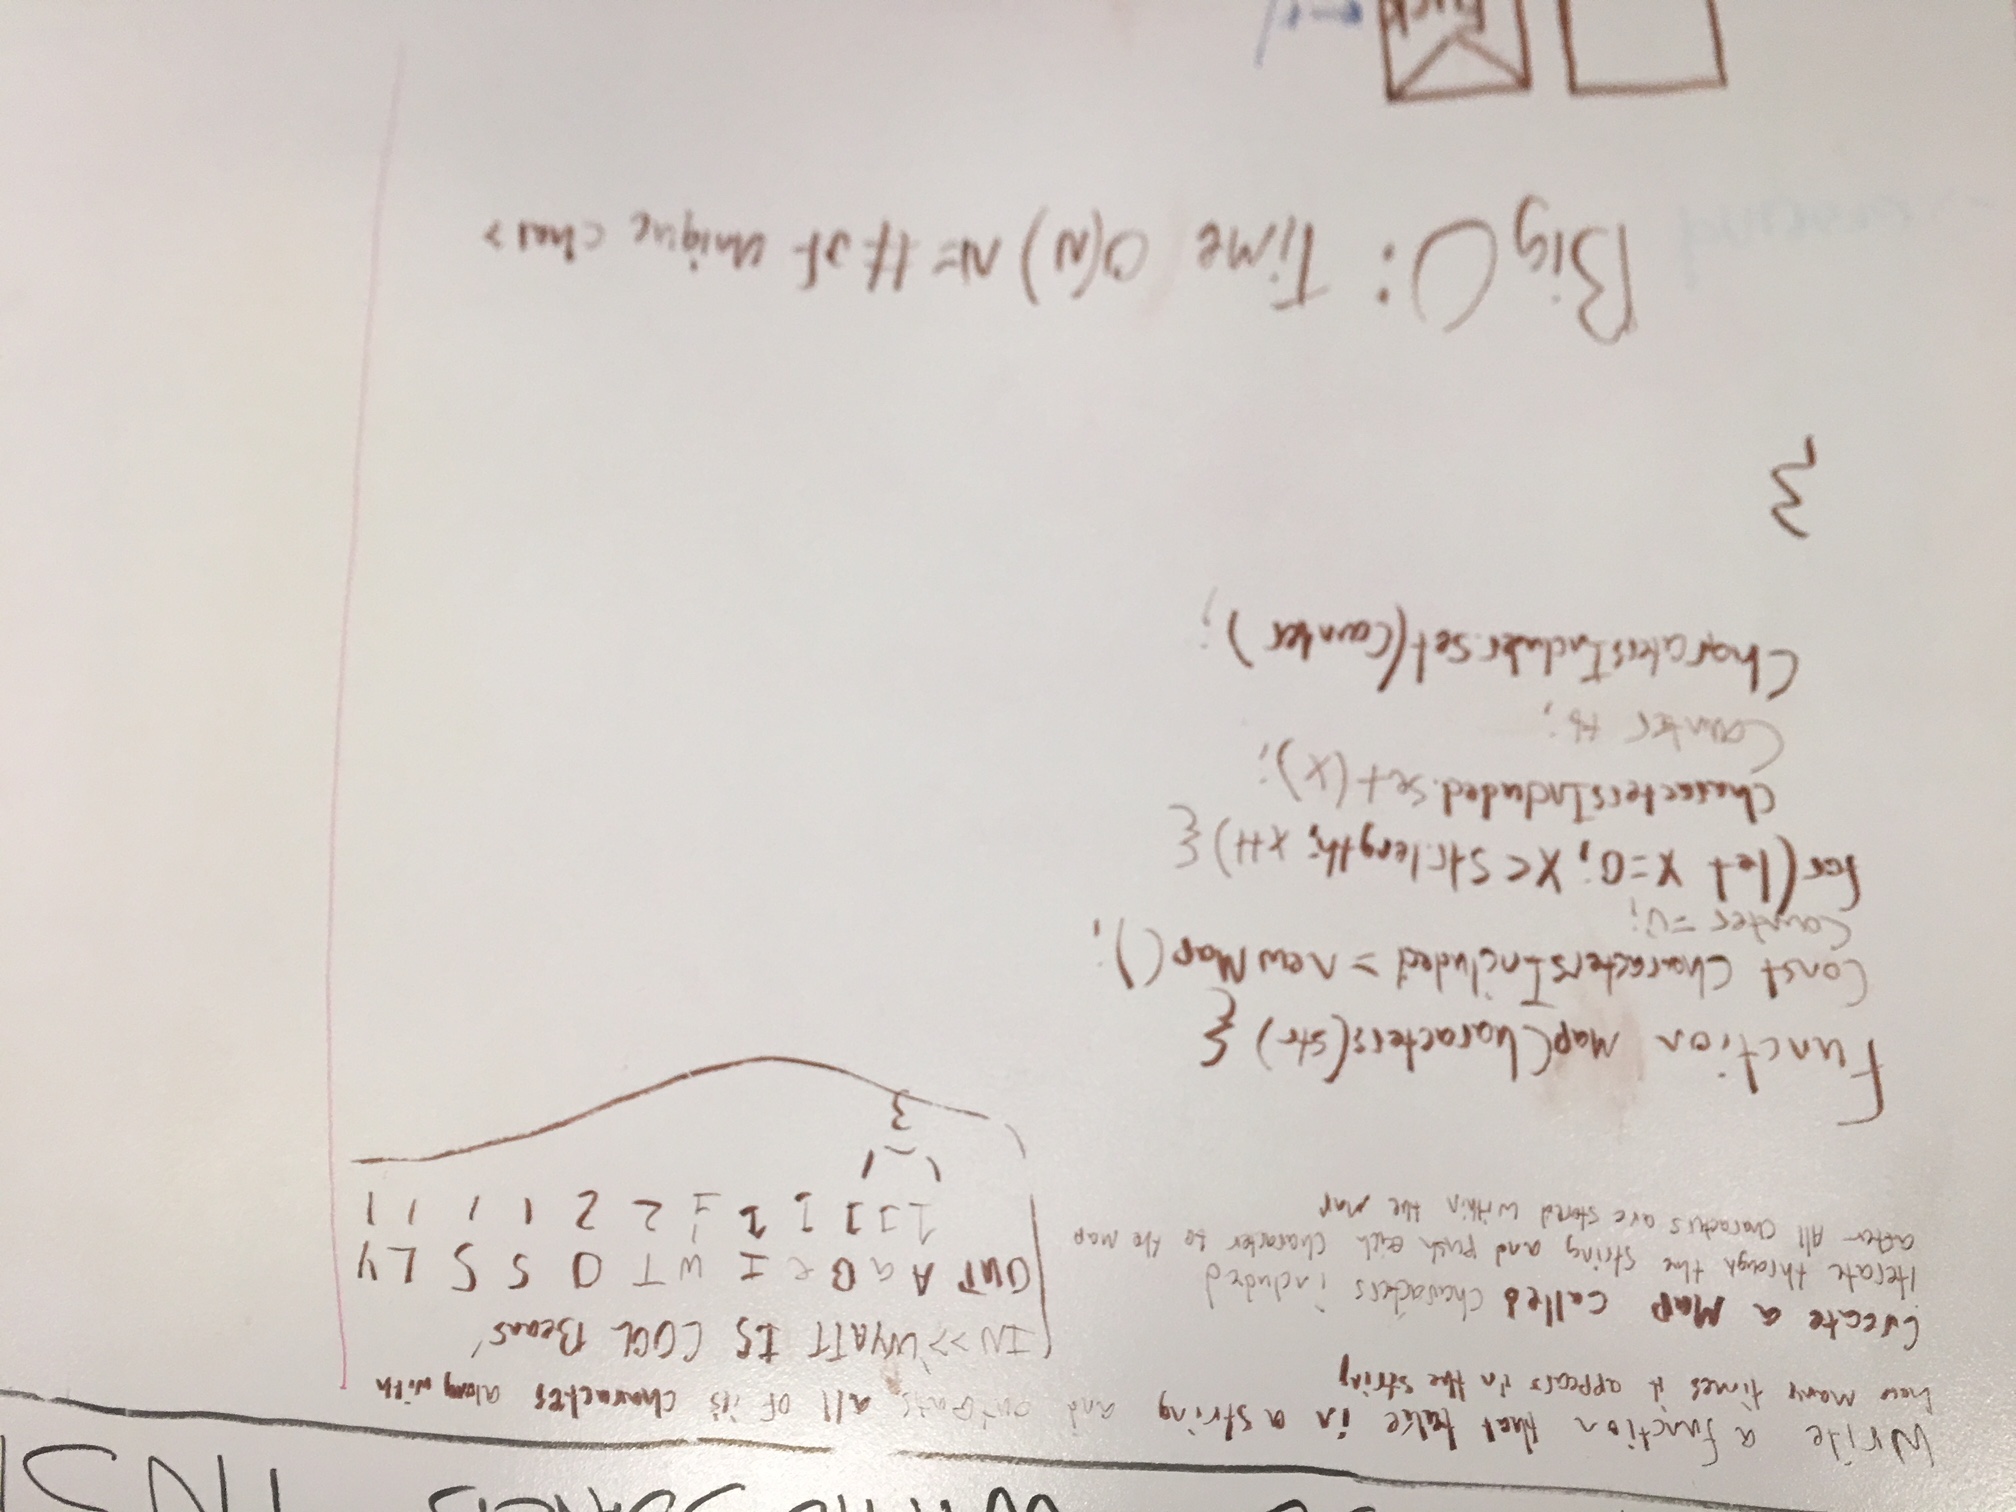 Write a function that take in a string and outputs all of its characters along with
how many times it appears in the string
IN >> 'WYATT IS COOL Beans'
Create a Map called characters included
Iterate through the string and push each character to the map
after All characters are stored within the map
OUT A a B e I W T O S S L Y
1 1 1 1 1 1 2 2 1 1 1 1
3
Function MapCharacters(str) {
Const CharactersIncluded = new Map();
Counter = 0;
for(let x=0; x<str.length; x++) {
CharactersIncluded.set(x);
Counter ++;
CharatersIncluder.set(Counter);
}
Big O: Time O(N) N= # of unique chars